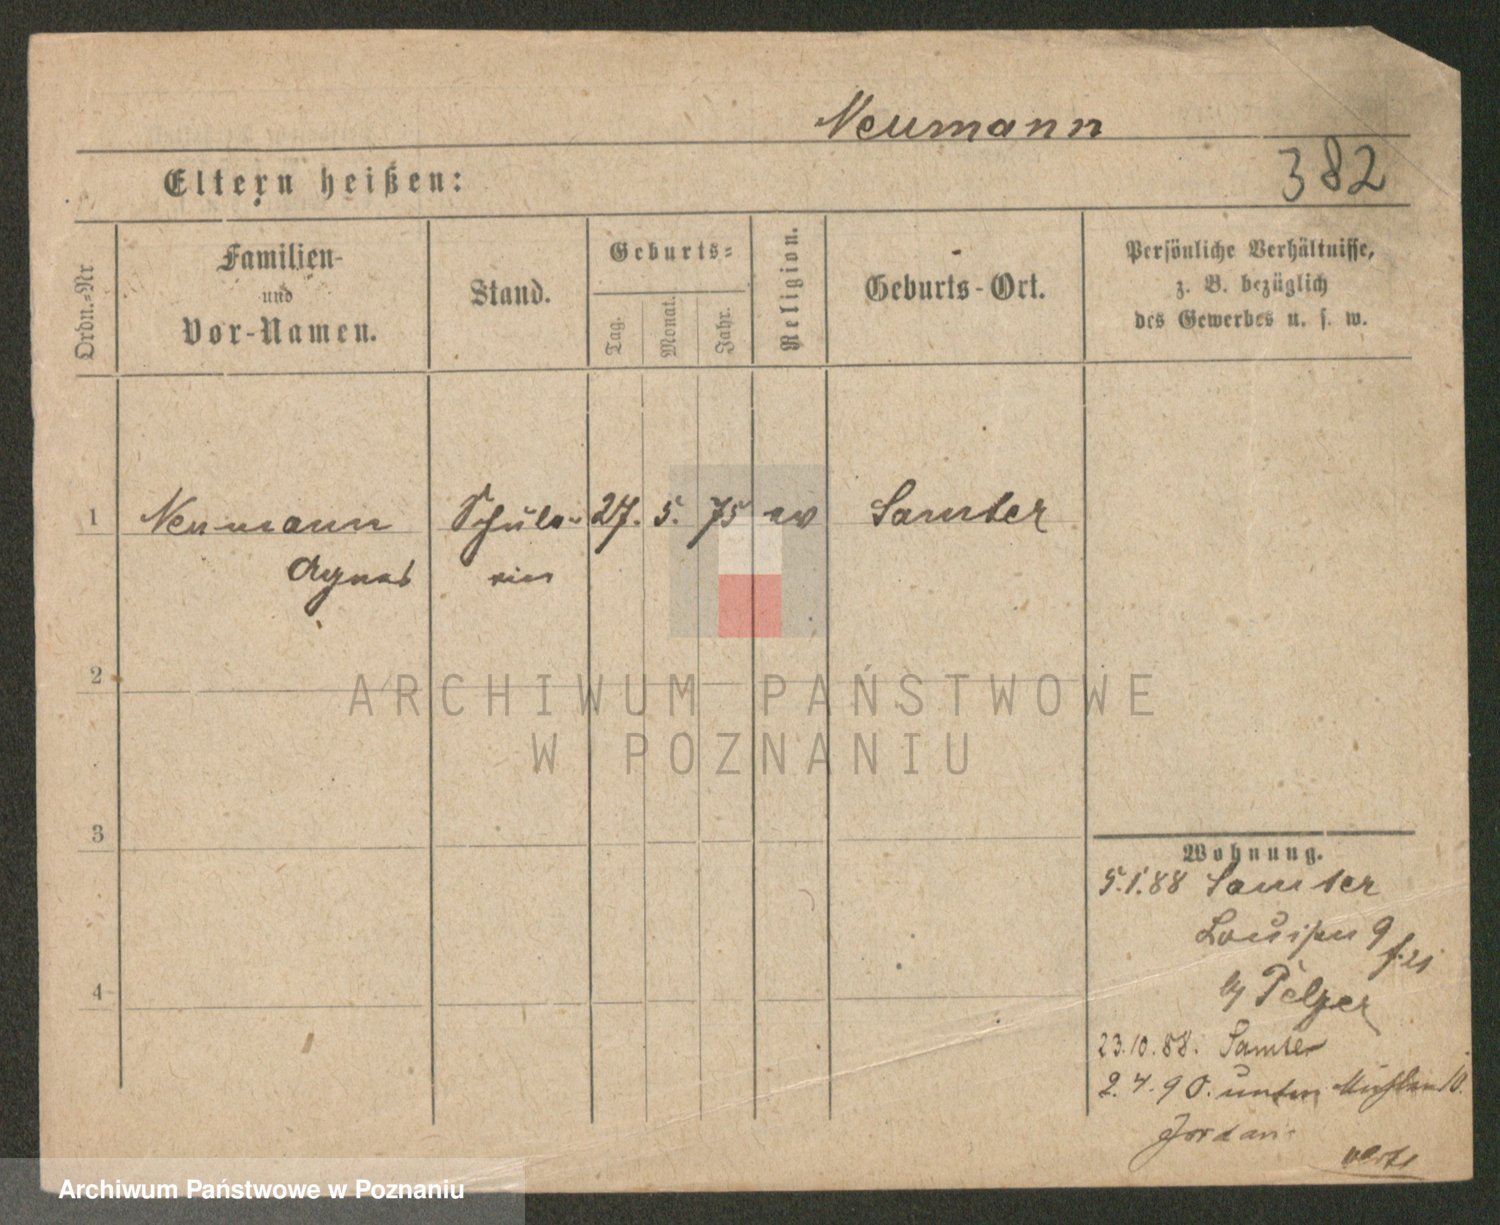 Neumann
Eltern heißen:
382
Ordn.-Nr
Familien-
und
Vor-Namen.
Stand.
Geburts-
Tag.
Monat.
Jahr.
Religion.
Geburts-Ort.
Persönliche Verhältnisse,
z. B. bezüglich
des Gewerbes u. s. w.
1 Neumann Schüle- 27. 5. 75 ev Samter
Agnes rin
2
ARCHIWUM PAŃSTWOWE
W POZNANIU
3
4
Wohnung.
5.1.88 Samter
Louisen 9
by Pelzer
23.10.88. Samter
2.4.90. unten Mühlen 10.
Jordan
Archiwum Państwowe w Poznaniu